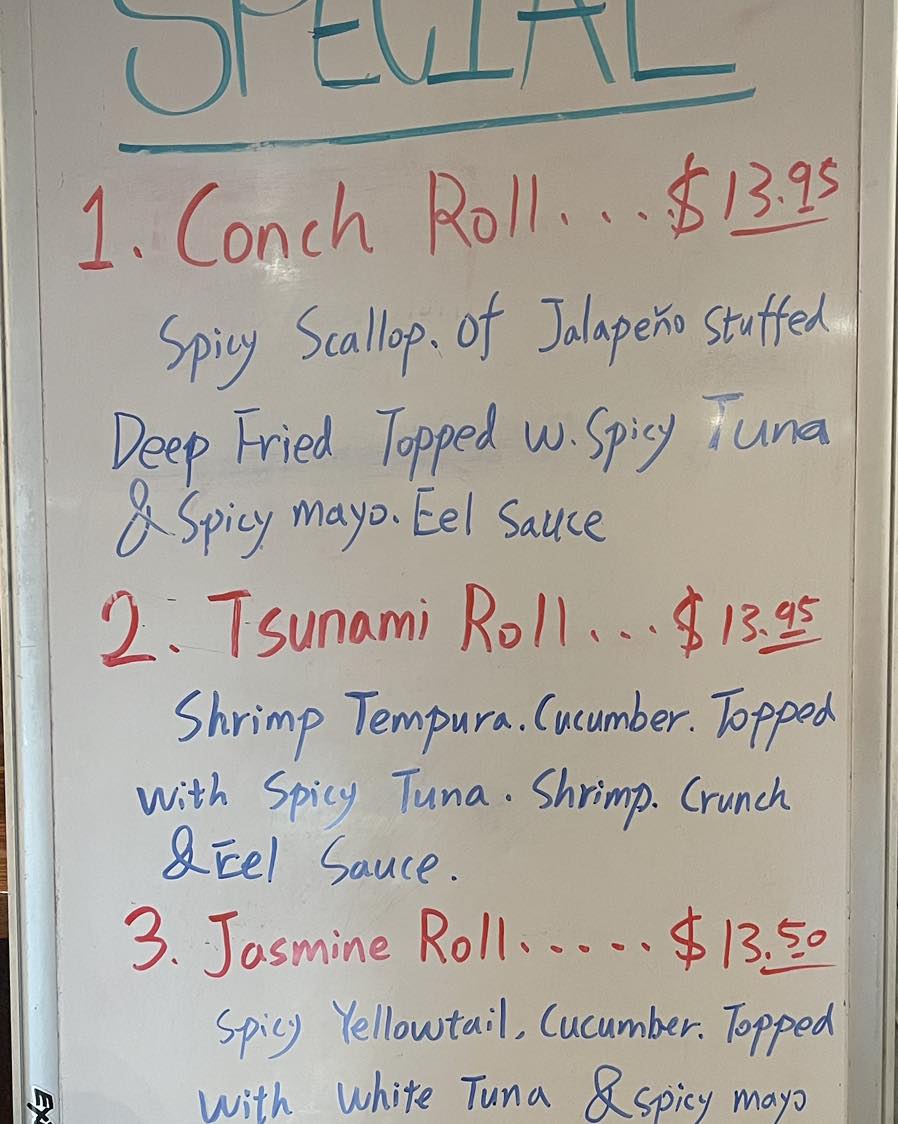 SPECIAL
1. Conch Roll. . . . $13.95
Spicy Scallop. of Jalapeño Stuffed
Deep Fried Topped w. Spicy Tuna
& Spicy mayo. Eel Sauce
2. Tsunami Roll . . . $13.95
Shrimp Tempura. Cucumber. Topped
with Spicy Tuna. Shrimp. Crunch
& Eel Sauce.
3. Jasmine Roll. . . . . . $13.50
Spicy Yellowtail, Cucumber. Topped
with White Tuna & Spicy mayo